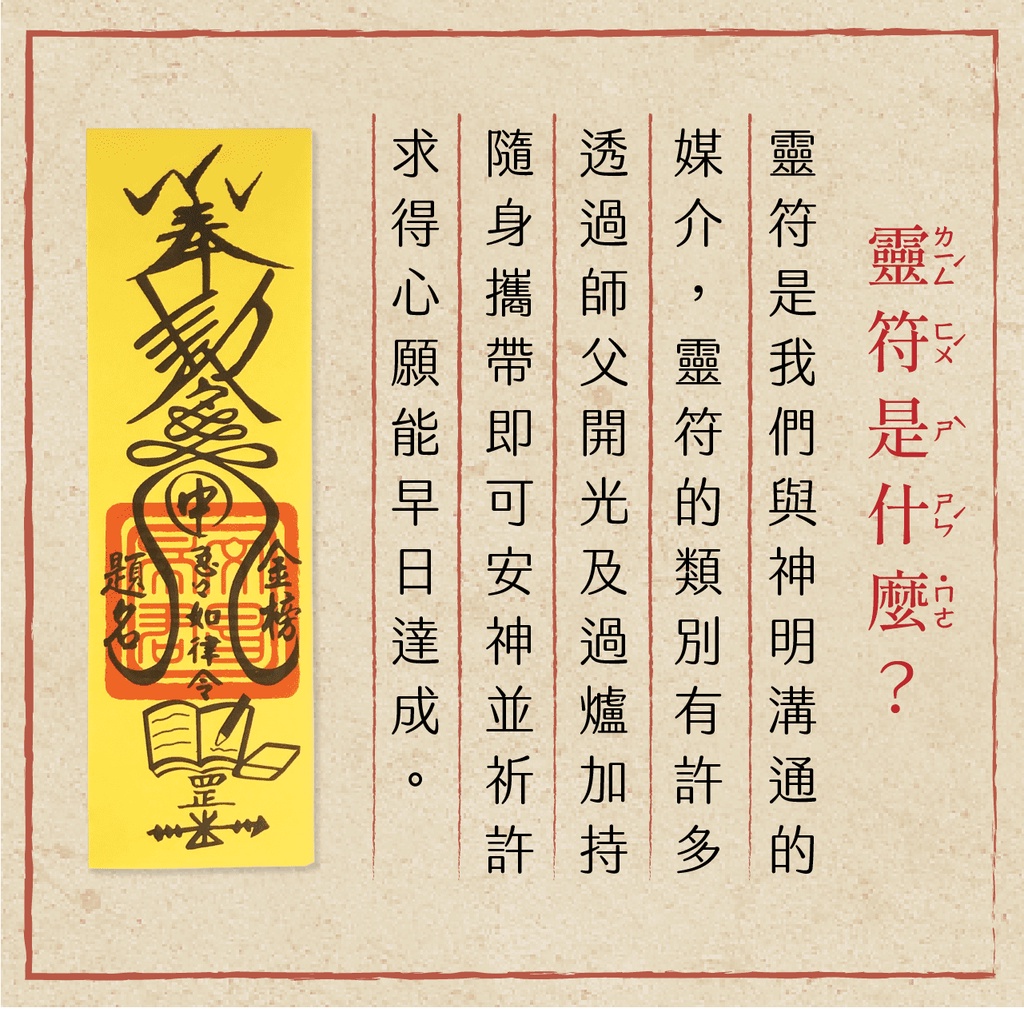 靈符是什麼？
ㄌㄧㄥˊ ㄈㄨˊ ㄕˋ ㄕㄣˊ ˙ㄇㄜ
靈符是我們與神明溝通的
媒介，靈符的類別有許多
透過師父開光及過爐加持
隨身攜帶即可安神並祈許
求得心願能早日達成。
奉
勅
中
金榜
題名
如律令
罡